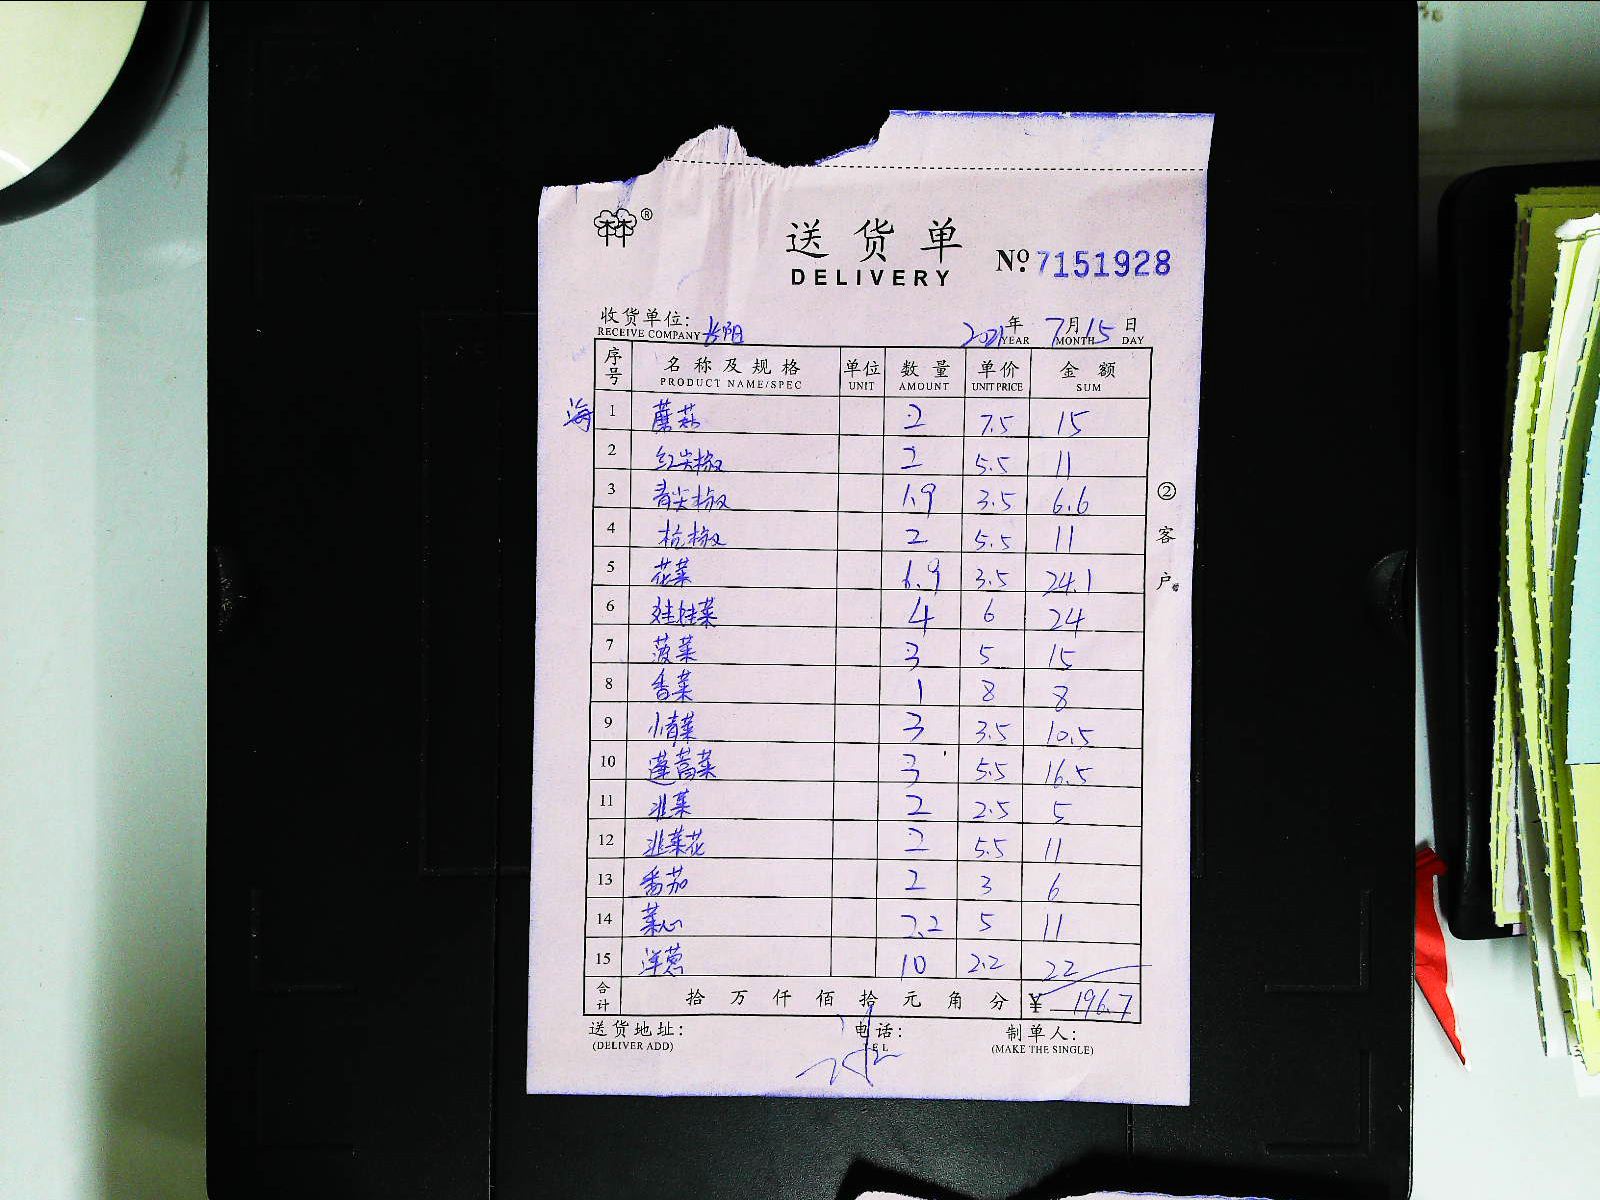 林林®
送货单
DELIVERY
Nº 7151928
收货单位: 长阳
RECEIVE COMPANY
2021年 7月 15日
YEAR MONTH DAY
序号 名称及规格 单位 数量 单价 金额
PRODUCT NAME/SPEC UNIT AMOUNT UNIT PRICE SUM
海 1 蘑菇 2 7.5 15
2 红尖椒 2 5.5 11
3 青尖椒 1.9 3.5 6.6
4 杭椒 2 5.5 11
5 花菜 6.9 3.5 24.1
6 娃娃菜 4 6 24
7 菠菜 3 5 15
8 香菜 1 8 8
9 小青菜 3 3.5 10.5
10 蓬蒿菜 3 5.5 16.5
11 韭菜 2 2.5 5
12 韭菜花 2 5.5 11
13 番茄 2 3 6
14 菜心 2.2 5 11
15 洋葱 10 2.2 22
合计 拾 万 仟 佰 拾 元 角 分 ¥ 196.7
②客户
送货地址: 电话: 制单人:
(DELIVER ADD) TEL (MAKE THE SINGLE)